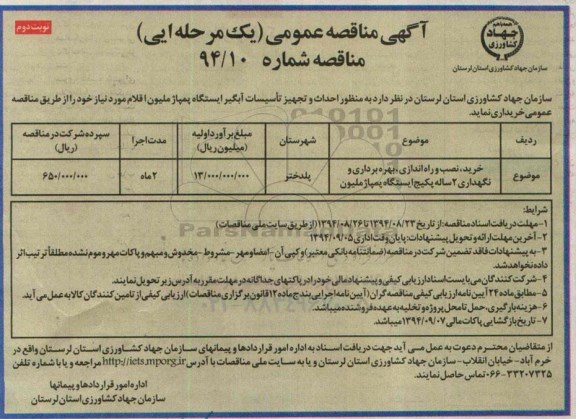 نوبت دوم
آگهی مناقصه عمومی (یک مرحله ایی)
مناقصه شماره ۹۴/۱۰
جهاد کشاورزی
سازمان جهاد کشاورزی استان لرستان
سازمان جهاد کشاورزی استان لرستان در نظر دارد به منظور احداث و تجهیز تأسیسات آبگیر ایستگاه پمپاژ ملیون اقلام مورد نیاز خود را از طریق مناقصه
عمومی خریداری نماید.
ردیف موضوع شهرستان مبلغ برآورد اولیه (میلیون ریال) مدت اجرا سپرده شرکت در مناقصه (ریال)
موضوع خرید، نصب و راه اندازی، بهره برداری و نگهداری ۲ ساله پکیج ایستگاه پمپاژ ملیون پلدختر ۱۳/۰۰۰/۰۰۰/۰۰۰ ۲ ماه ۶۵۰/۰۰۰/۰۰۰
شرایط:
۱- مهلت دریافت اسناد مناقصه: از تاریخ ۱۳۹۴/۰۸/۲۳ تا ۱۳۹۴/۰۸/۲۶ (از طریق سایت ملی مناقصات)
۲- آخرین مهلت ارائه و تحویل پیشنهادات: پایان وقت اداری ۱۳۹۴/۰۹/۰۵
۳- به پیشنهادات فاقد تضمین شرکت در مناقصه (ضمانتنامه بانکی معتبر) و کپی آن - امضا و مهر - مشروط - مخدوش و مبهم و پاکات مهر و موم نشده مطلقاً ترتیب اثر
داده نخواهد شد.
۴- شرکت کنندگان می بایست اسناد ارزیابی کیفی و پیشنهاد مالی خود را در پاکتهای جداگانه در مهلت مقرر به آدرس زیر تحویل نمایند.
۵- مطابق ماده ۲۴ آیین نامه ارزیابی کیفی مناقصه گران (آیین نامه اجرایی بند ج ماده ۱۲ قانون برگزاری مناقصات) ارزیابی کیفی از تامین کنندگان کالا به عمل می آید.
۶- هزینه بارگیری، حمل تا محل پروژه و تخلیه به عهده فروشنده میباشد.
۷- تاریخ بازگشایی پاکات مالی ۱۳۹۴/۰۹/۰۷ میباشد.
از متقاضیان محترم دعوت به عمل می آید جهت دریافت اسناد به اداره امور قراردادها و پیمانهای سازمان جهاد کشاورزی استان لرستان واقع در
خرم آباد - خیابان انقلاب - سازمان جهاد کشاورزی استان لرستان و یا به سایت ملی مناقصات با آدرس http://iets.mporg.ir مراجعه و یا با شماره تلفن
۰۶۶-۳۳۲۰۷۳۲۵ تماس حاصل نمایند.
اداره امور قراردادها و پیمانها
سازمان جهاد کشاورزی استان لرستان